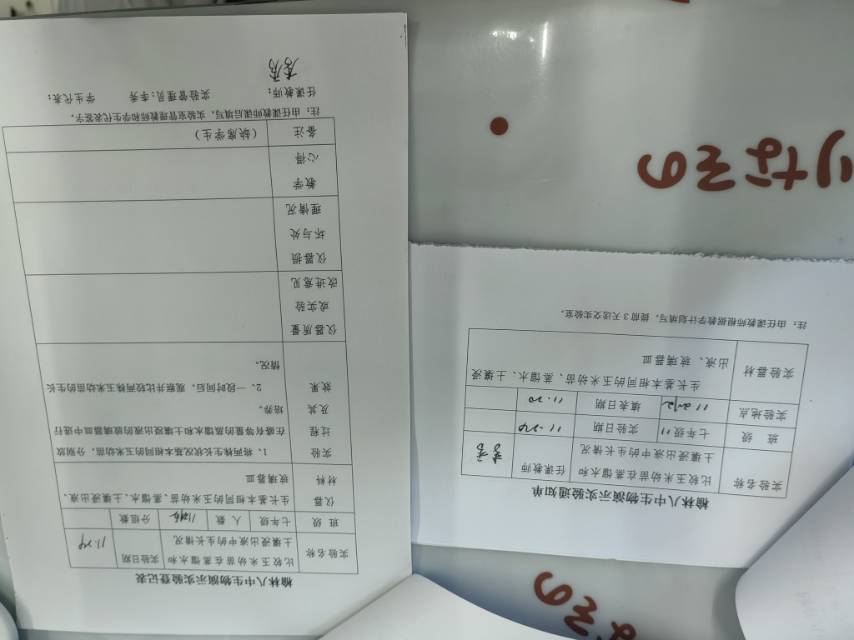 榆林八中生物演示实验通知单
实验名称 比较玉米幼苗在蒸馏水和土壤浸出液中的生长情况 任课教师
班 级 七年级 实验日期
实验地点 填表日期 11.20
实验器材 生长基本相同的玉米幼苗、蒸馏水、土壤浸出液、玻璃器皿
注：由任课教师根据教学计划填写，提前3天送交实验室。
榆林八中生物演示实验登记表
实验名称 比较玉米幼苗在蒸馏水和土壤浸出液中的生长情况 实验日期
班 级 七年级 人 数 分组数
仪器材料 生长基本相同的玉米幼苗、蒸馏水、土壤浸出液、玻璃器皿
实验过程及其效果 1、将两株生长状况基本相同的玉米幼苗，分别放在盛有等量的蒸馏水和土壤浸出液的玻璃器皿中进行培养。
2、一段时间后，观察并比较两株玉米幼苗的生长情况。
仪器质量或实验改进意见
仪器损坏与处理情况
教学心得
备注 （缺席学生）
注：由任课教师课后填写，实验室管理教师和学生代表签字。
任课教师： 实验管理员：李秀 学生代表：